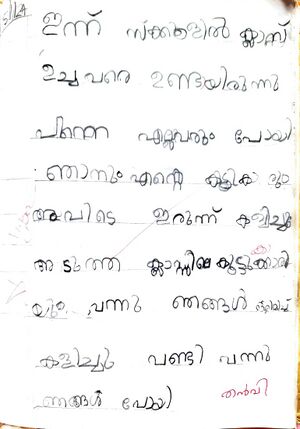 ഇന്ന് സ്ക്കൂളിൽ ക്ലാസ്
ഉച്ചവരെ ഉണ്ടയിരുന്നു
പിന്നെ എല്ലവരും പോയി
ഞാനും എന്റെ
അവിടെ ഇരുന്ന് കളിച്ചു
അടുത്ത ക്ലാസ്സിലെ കൂട്ടുക്കാരി
യും വന്നു ഞങ്ങൾ
കളിച്ചു വണ്ടി വന്നു
ഞങ്ങൾ പോയി
തൻവി